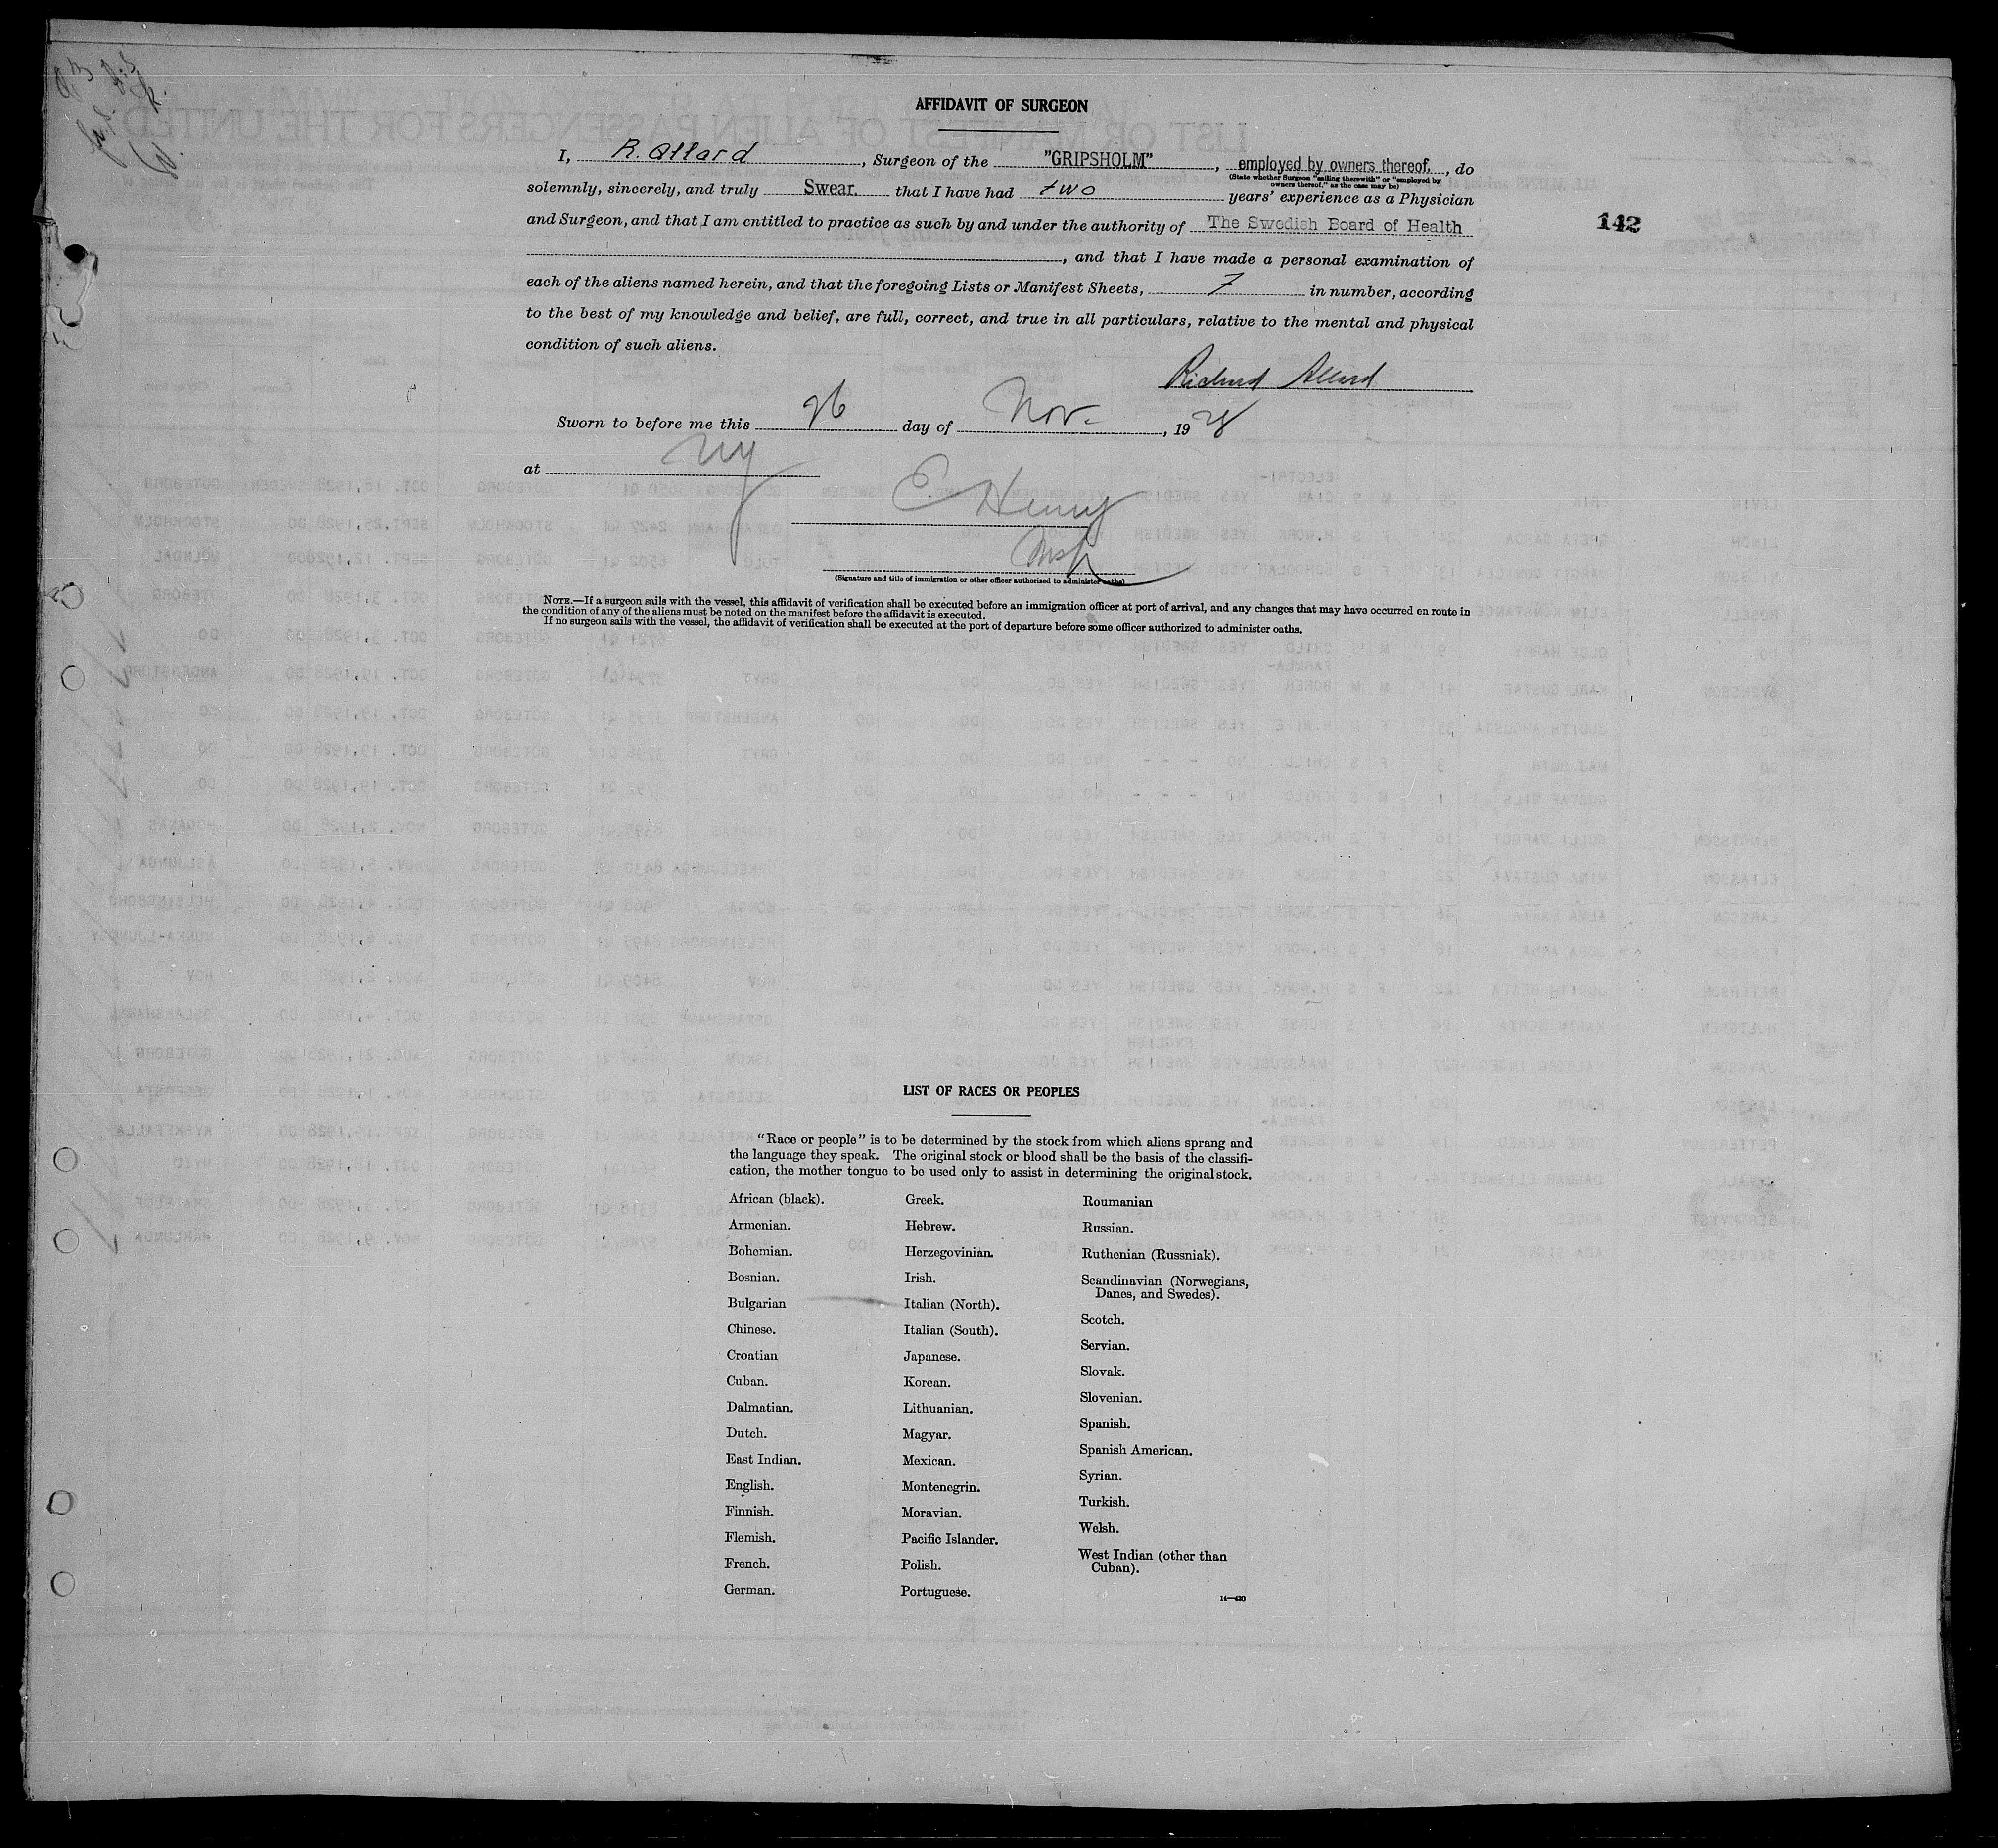 AFFIDAVIT OF SURGEON
I, R. Allard, Surgeon of the "GRIPSHOLM", employed by owners thereof., do
(State whether Surgeon "sailing therewith" or "employed by
owners thereof," as the case may be)
solemnly, sincerely, and truly Swear. that I have had two years' experience as a Physician
and Surgeon, and that I am entitled to practice as such by and under the authority of The Swedish Board of Health
142
, and that I have made a personal examination of
each of the aliens named herein, and that the foregoing Lists or Manifest Sheets, 7 in number, according
to the best of my knowledge and belief, are full, correct, and true in all particulars, relative to the mental and physical
condition of such aliens.
Richard Allard
Sworn to before me this 26 day of Nov., 1928
at NY
E Henry
Insp
(Signature and title of immigration or other officer authorized to administer oaths)
NOTE.—If a surgeon sails with the vessel, this affidavit of verification shall be executed before an immigration officer at port of arrival, and any changes that may have occurred en route in
the condition of any of the aliens must be noted on the manifest before the affidavit is executed.
If no surgeon sails with the vessel, the affidavit of verification shall be executed at the port of departure before some officer authorized to administer oaths.
LIST OF RACES OR PEOPLES
"Race or people" is to be determined by the stock from which aliens sprang and
the language they speak. The original stock or blood shall be the basis of the classifi-
cation, the mother tongue to be used only to assist in determining the original stock.
African (black).
Armenian.
Bohemian.
Bosnian.
Bulgarian
Chinese.
Croatian
Cuban.
Dalmatian.
Dutch.
East Indian.
English.
Finnish.
Flemish.
French.
German.
Greek.
Hebrew.
Herzegovinian.
Irish.
Italian (North).
Italian (South).
Japanese.
Korean.
Lithuanian.
Magyar.
Mexican.
Montenegrin.
Moravian.
Pacific Islander.
Polish.
Portuguese.
Roumanian
Russian.
Ruthenian (Russniak).
Scandinavian (Norwegians,
Danes, and Swedes).
Scotch.
Servian.
Slovak.
Slovenian.
Spanish.
Spanish American.
Syrian.
Turkish.
Welsh.
West Indian (other than
Cuban).
14—430